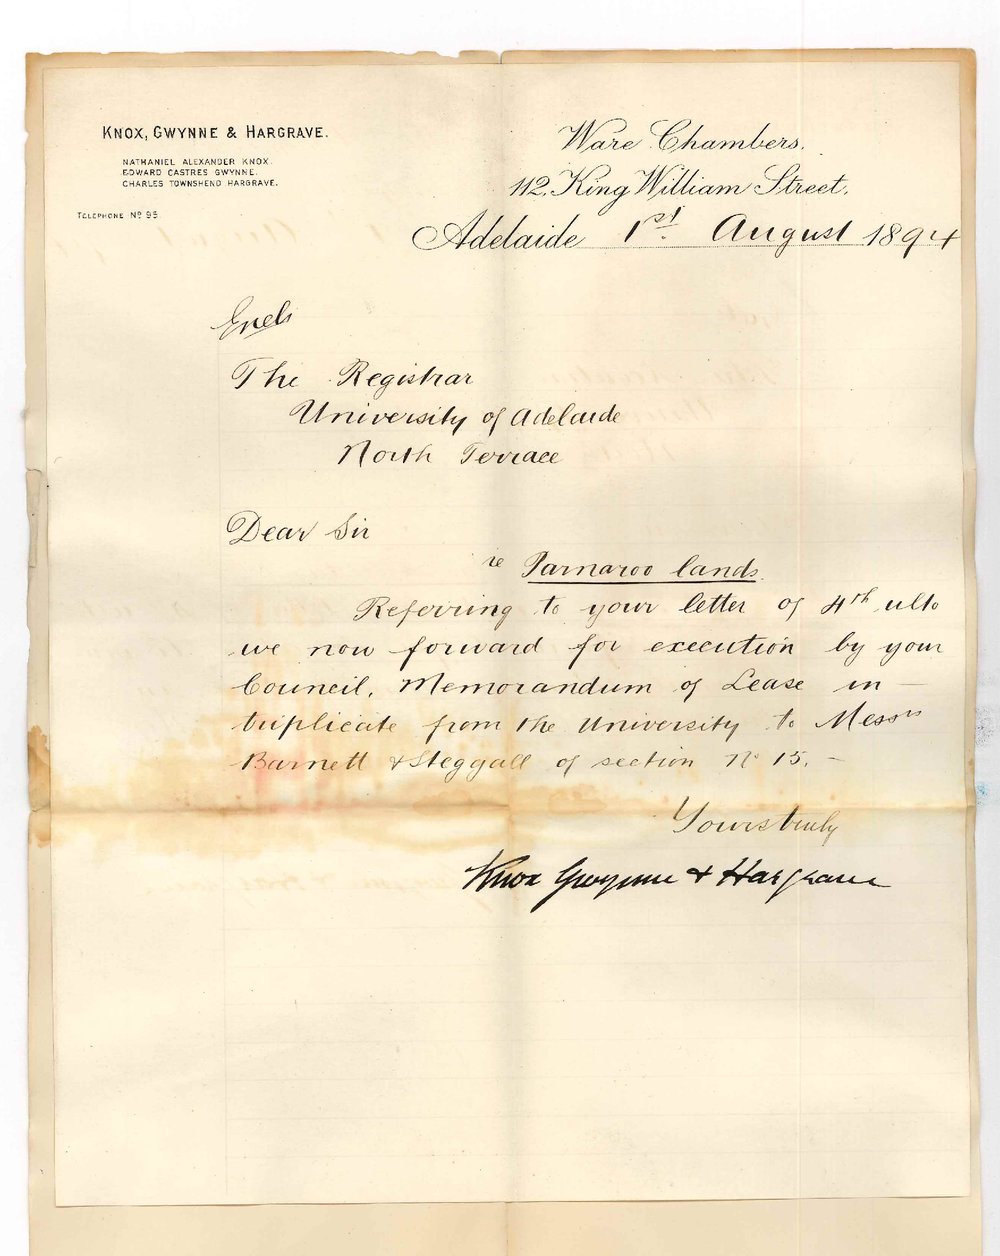 KNOX, GWYNNE & HARGRAVE.
NATHANIEL ALEXANDER KNOX.
EDWARD CASTRES GWYNNE.
CHARLES TOWNSHEND HARGRAVE.
TELEPHONE Nº 95
Ware Chambers.
112, King William Street,
Adelaide 1st August 1894
Encls
The Registrar
University of Adelaide
North Terrace
Dear Sir
re Parnaroo lands.
Referring to your letter of 4th ulto
we now forward for execution by your
Council, Memorandum of Lease in
triplicate from the University to Messrs
Barnett & Steggall of section No 15. –
Yours truly
Knox Gwynne & Hargrave